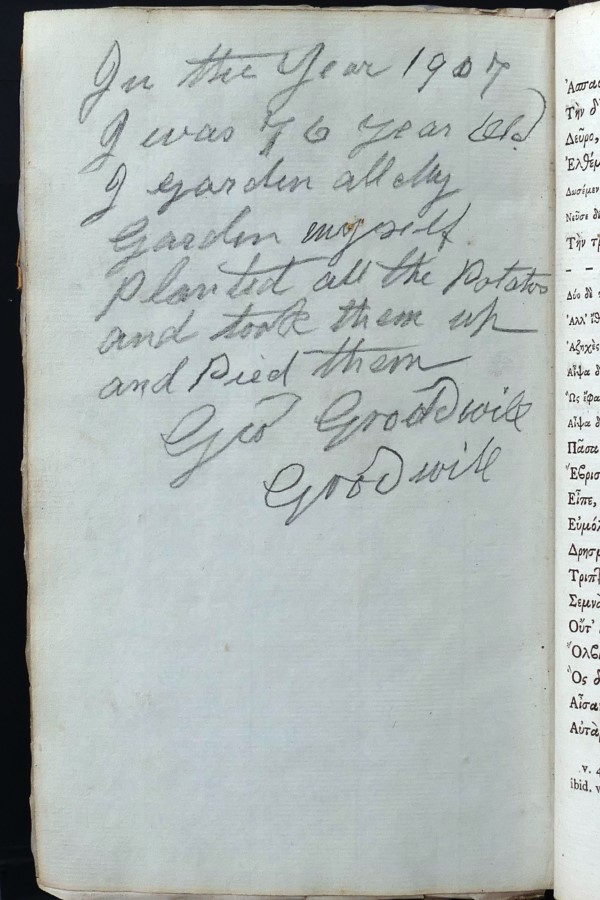 In the Year 1907
I was 76 year Old
I garden all My
Garden myself
Planted all the Potatos
and took them up
and Pied them
Geo Goodwill
Goodwill
Ἀσπασ
Τὴν δ'
Δεῦρο,
Ἐλθέμ
Δυσέμεν
Νεῦσε δὲ
Τὴν τρ
Δύο δὲ
Ἀλλ' ἴθ
Ἀζηχὲς
Αἶψα δ
Ὣς ἔφα
Αἶψα δ
Πᾶσα
Ἔβρισ
Εἶπε,
Εὐμόλ
Δρησμ
Τριπτ
Σεμνὰ
Οὔτ'
Ὄλβι
Ὃς δ
Αἶσαν
Αὐτὰρ
v. 4
ibid. v